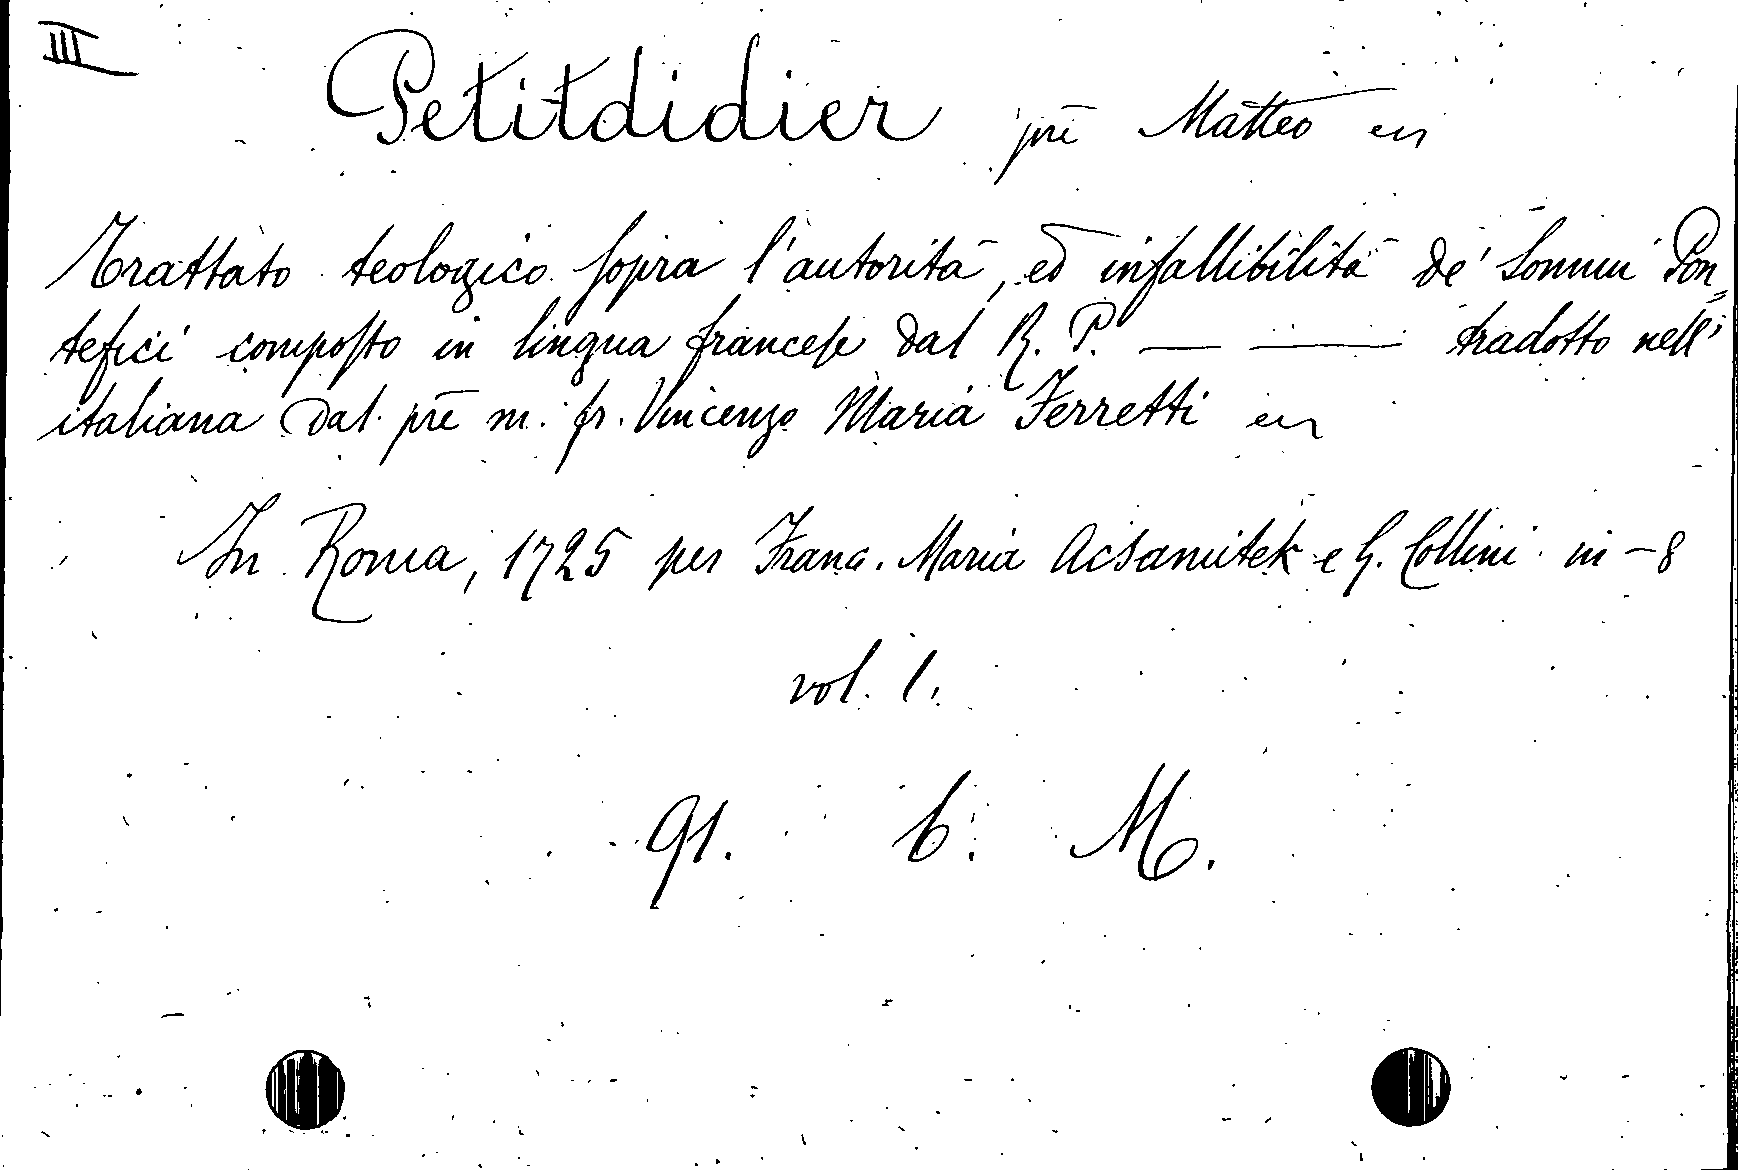 III
Petitdidier prē Matteo
Trattato teologico sopra l'autorità, ed infallibilità de' Sommi Pon=
tefici composto in lingua francese dal R. P. — — tradotto nell'
italiana dal prē m. fr. Vincenzo Maria Ferretti
In Roma, 1725 per Franc. Maria Acsamitek e G. Collini in-8
vol. 1.
91. b. M.